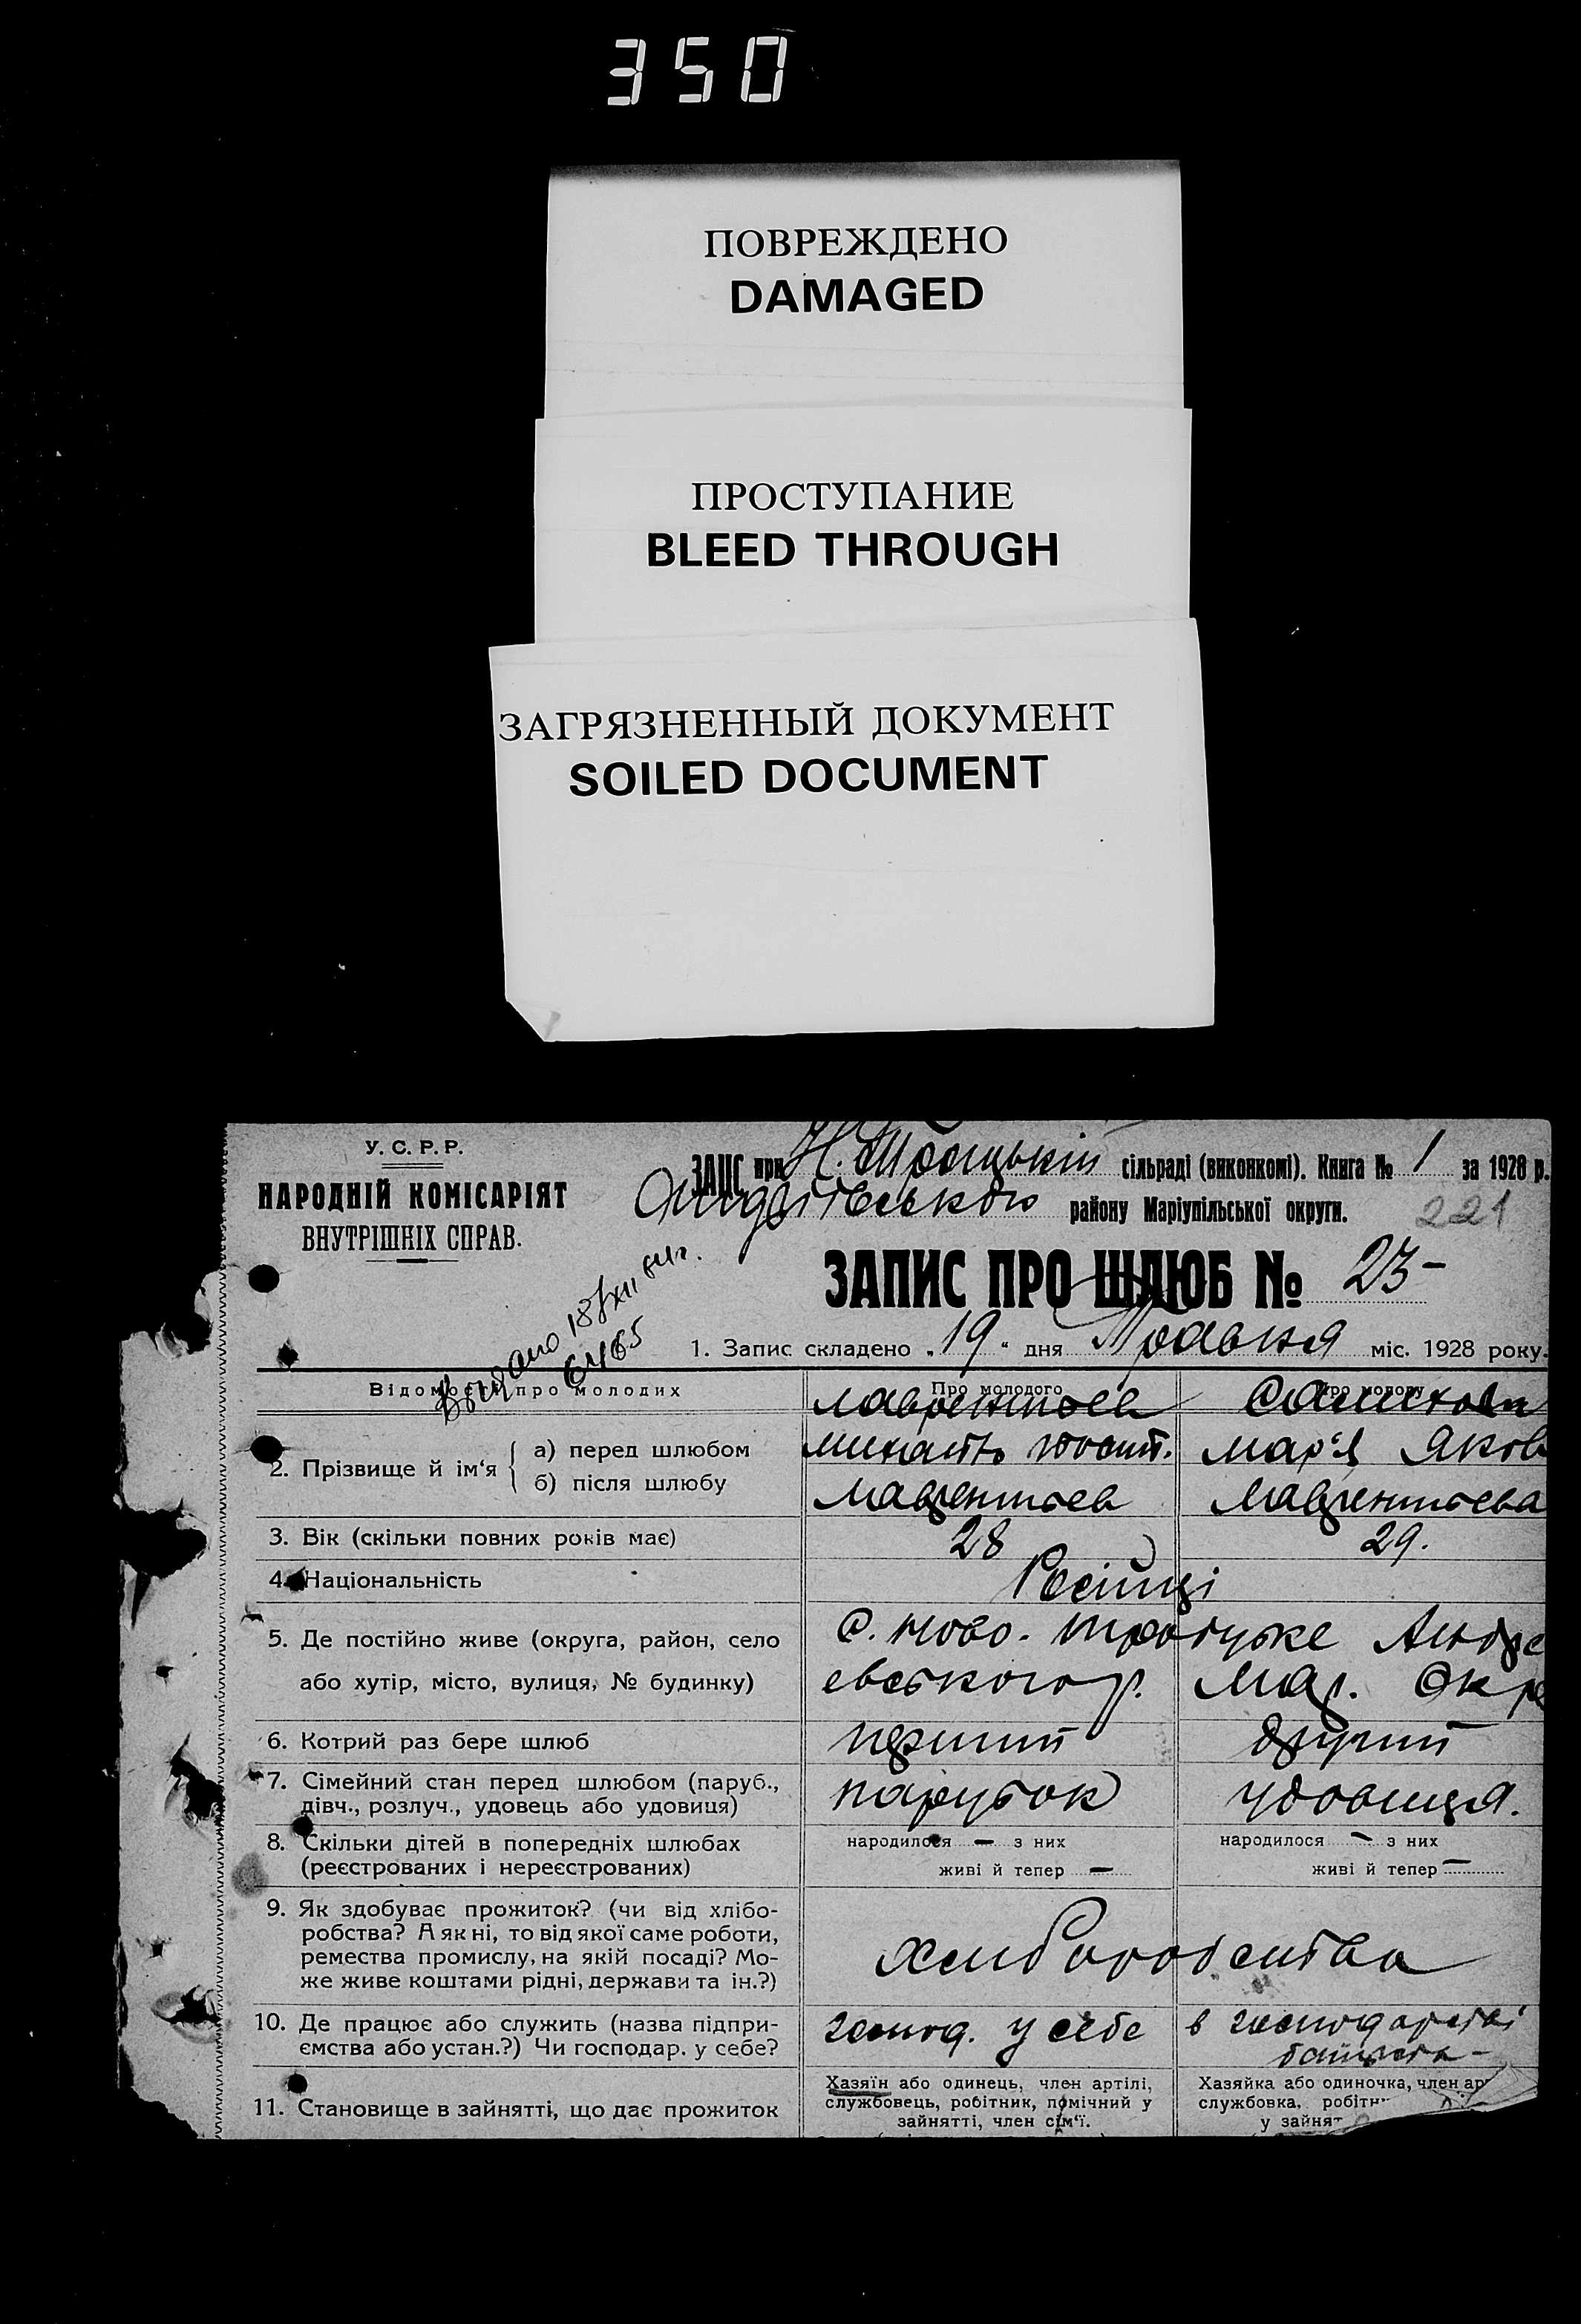 350
ПОВРЕЖДЕНО
DAMAGED
ПРОСТУПАНИЕ
BLEED THROUGH
ЗАГРЯЗНЕННЫЙ ДОКУМЕНТ
SOILED DOCUMENT
У. С. Р. Р.
НАРОДНІЙ КОМІСАРІЯТ
ВНУТРІШНІХ СПРАВ.
ЗАПС при Н. Троицькій сільраді (виконкомі). Книга № 1 за 1928 р.
району Маріупільської округи.
221
Выдано 18/XII 64г.
ЗАПИС ПРО ШЛЮБ № 23-
1. Запис складено „19“ дня Травня міс. 1928 року.
Відомості про молодих
Про молодого
Про молоду
Лаврентьев
2. Прізвище й ім‘я
а) перед шлюбом
б) після шлюбу
Мар‘я Яков
Лаврентьев
Лаврентьева
3. Вік (скільки повних років має)
28
29.
4. Національність
Росіяци
5. Де постійно живе (округа, район, село
або хутір, місто, вулиця, № будинку)
С. Ново-Троіцьке Андре
евського р. Мар. Окр
6. Котрий раз бере шлюб
перший
другий
7. Сімейний стан перед шлюбом (паруб.,
дівч., розлуч., удовець або удовиця)
парубок
удовиця.
8. Скільки дітей в попередніх шлюбах
(реєстрованих і нереєстрованих)
народилося — з них
живі й тепер —
народилося — з них
живі й тепер —
9. Як здобуває прожиток? (чи від хлібо-
робства? А як ні, то від якої саме роботи,
ремества промислу, на якій посаді? Мо-
же живе коштами рідні, держави та ін.?)
хлиборобства
10. Де працює або служить (назва підпри-
ємства або устан.?) Чи господар. у себе?
господ. у себе
в господарстві
батька -
11. Становище в зайнятті, що дає прожиток
Хазяїн або одинець, член артілі,
службовець, робітник, помічний у
зайнятті, член сім‘ї.
Хазяйка або одиночка, член ар
службовка, робітн
у зайнят